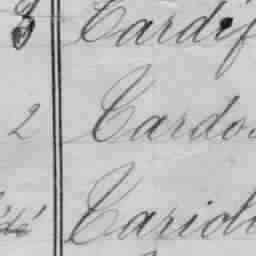 3 Cardif
2 Cardo
Cariol